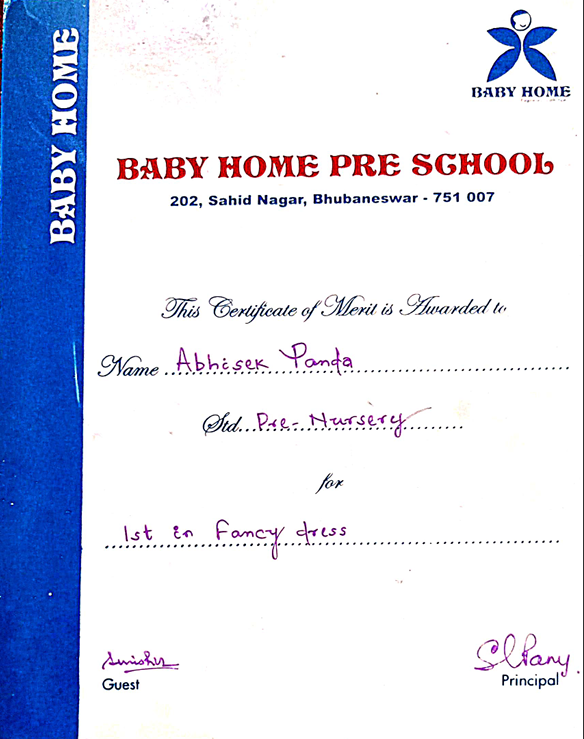 BABY HOME
BABY HOME
BABY HOME PRE SCHOOL
202, Sahid Nagar, Bhubaneswar - 751 007
This Certificate of Merit is Awarded to
Name Abhisek Panda
Std. Pre-Nursery
for
1st in Fancy dress
Guest
Principal